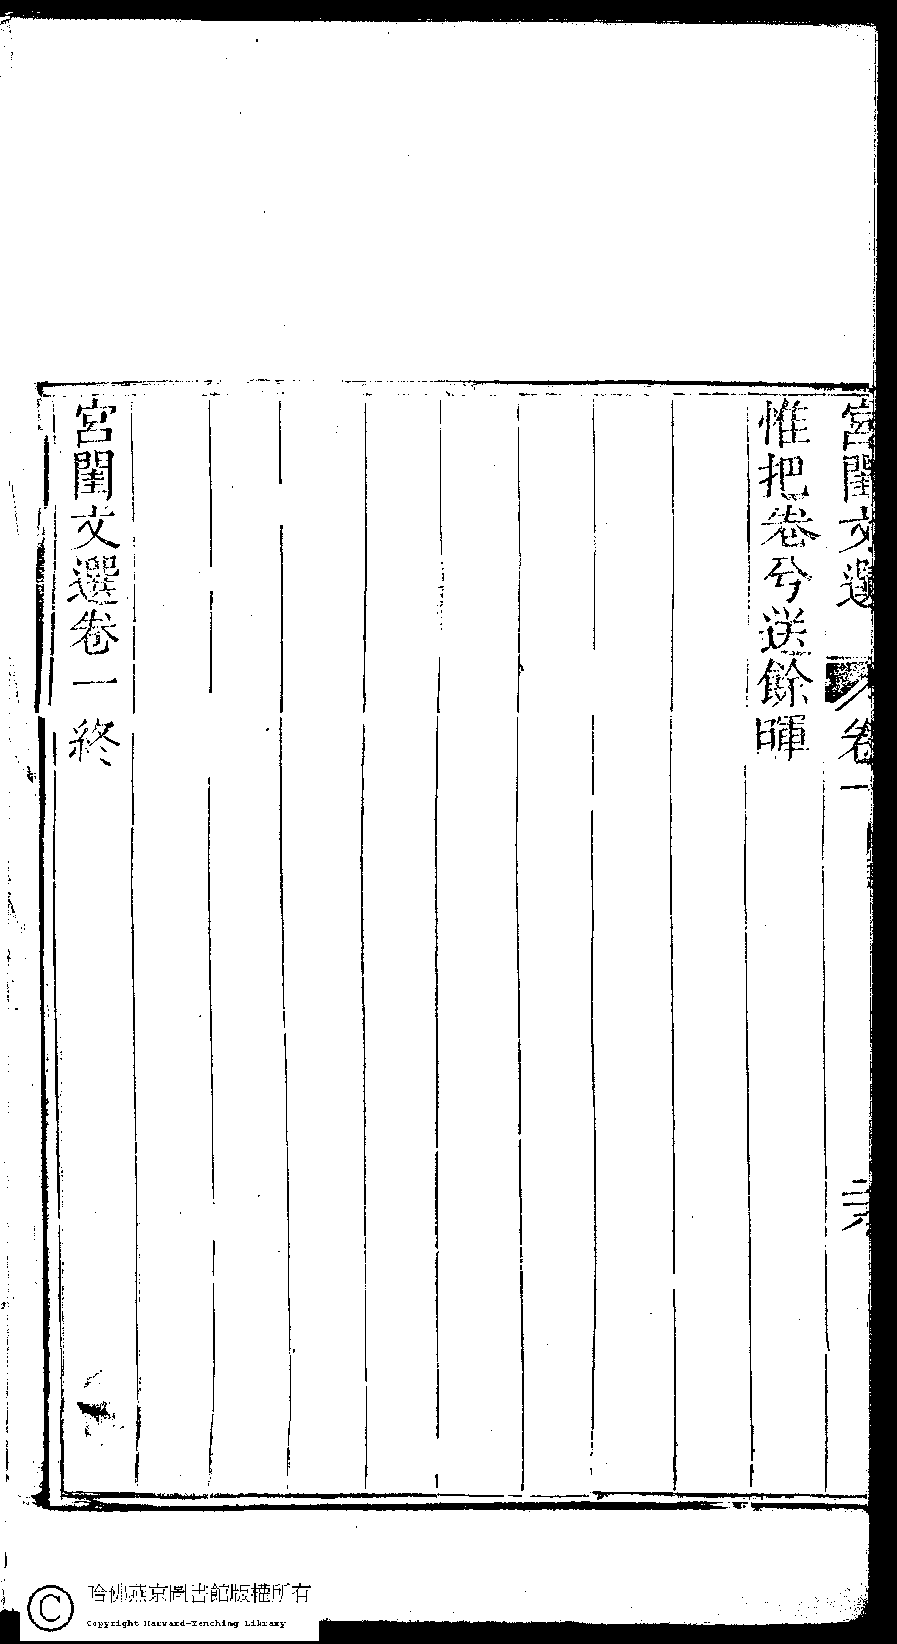 宮閨文選
卷一
二六
惟把卷兮送餘暉
宮閨文選卷一終
哈佛燕京圖書館版權所有
Copyright Harvard-Yenching Library